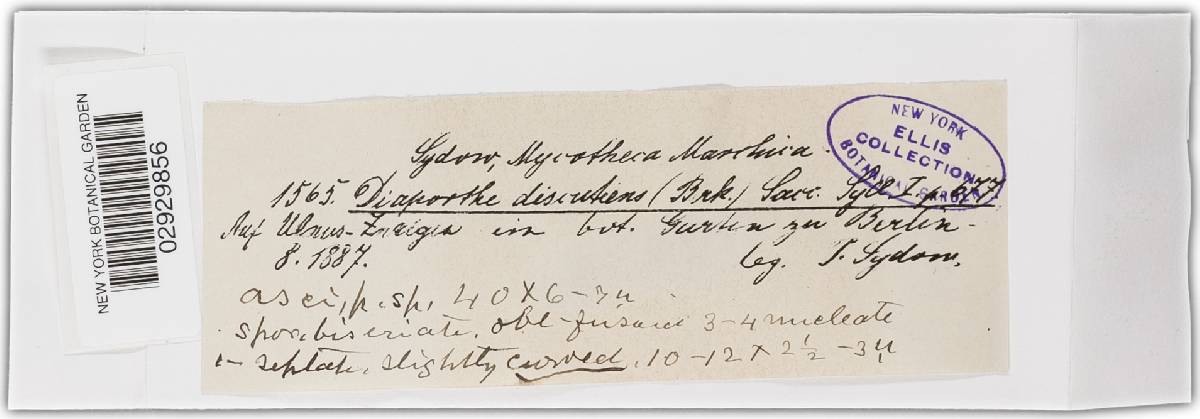 NEW YORK BOTANICAL GARDEN
02929856
NEW YORK
ELLIS
COLLECTION
BOTANICAL GARDEN
Sydow, Mycotheca Marchica.
1565. Diaporthe discutiens (Brk.) Sacc. Syll. I p. 677
Auf Ulmus-Zweigen im bot. Garten zu Berlin-
8. 1887. leg. P. Sydow.
asci, p. sp. 40 × 6-7µ
spor. biseriate, obl-fusoid 3-4 nucleate
1- septate, slightly curved, 10-12 × 2½-3µ